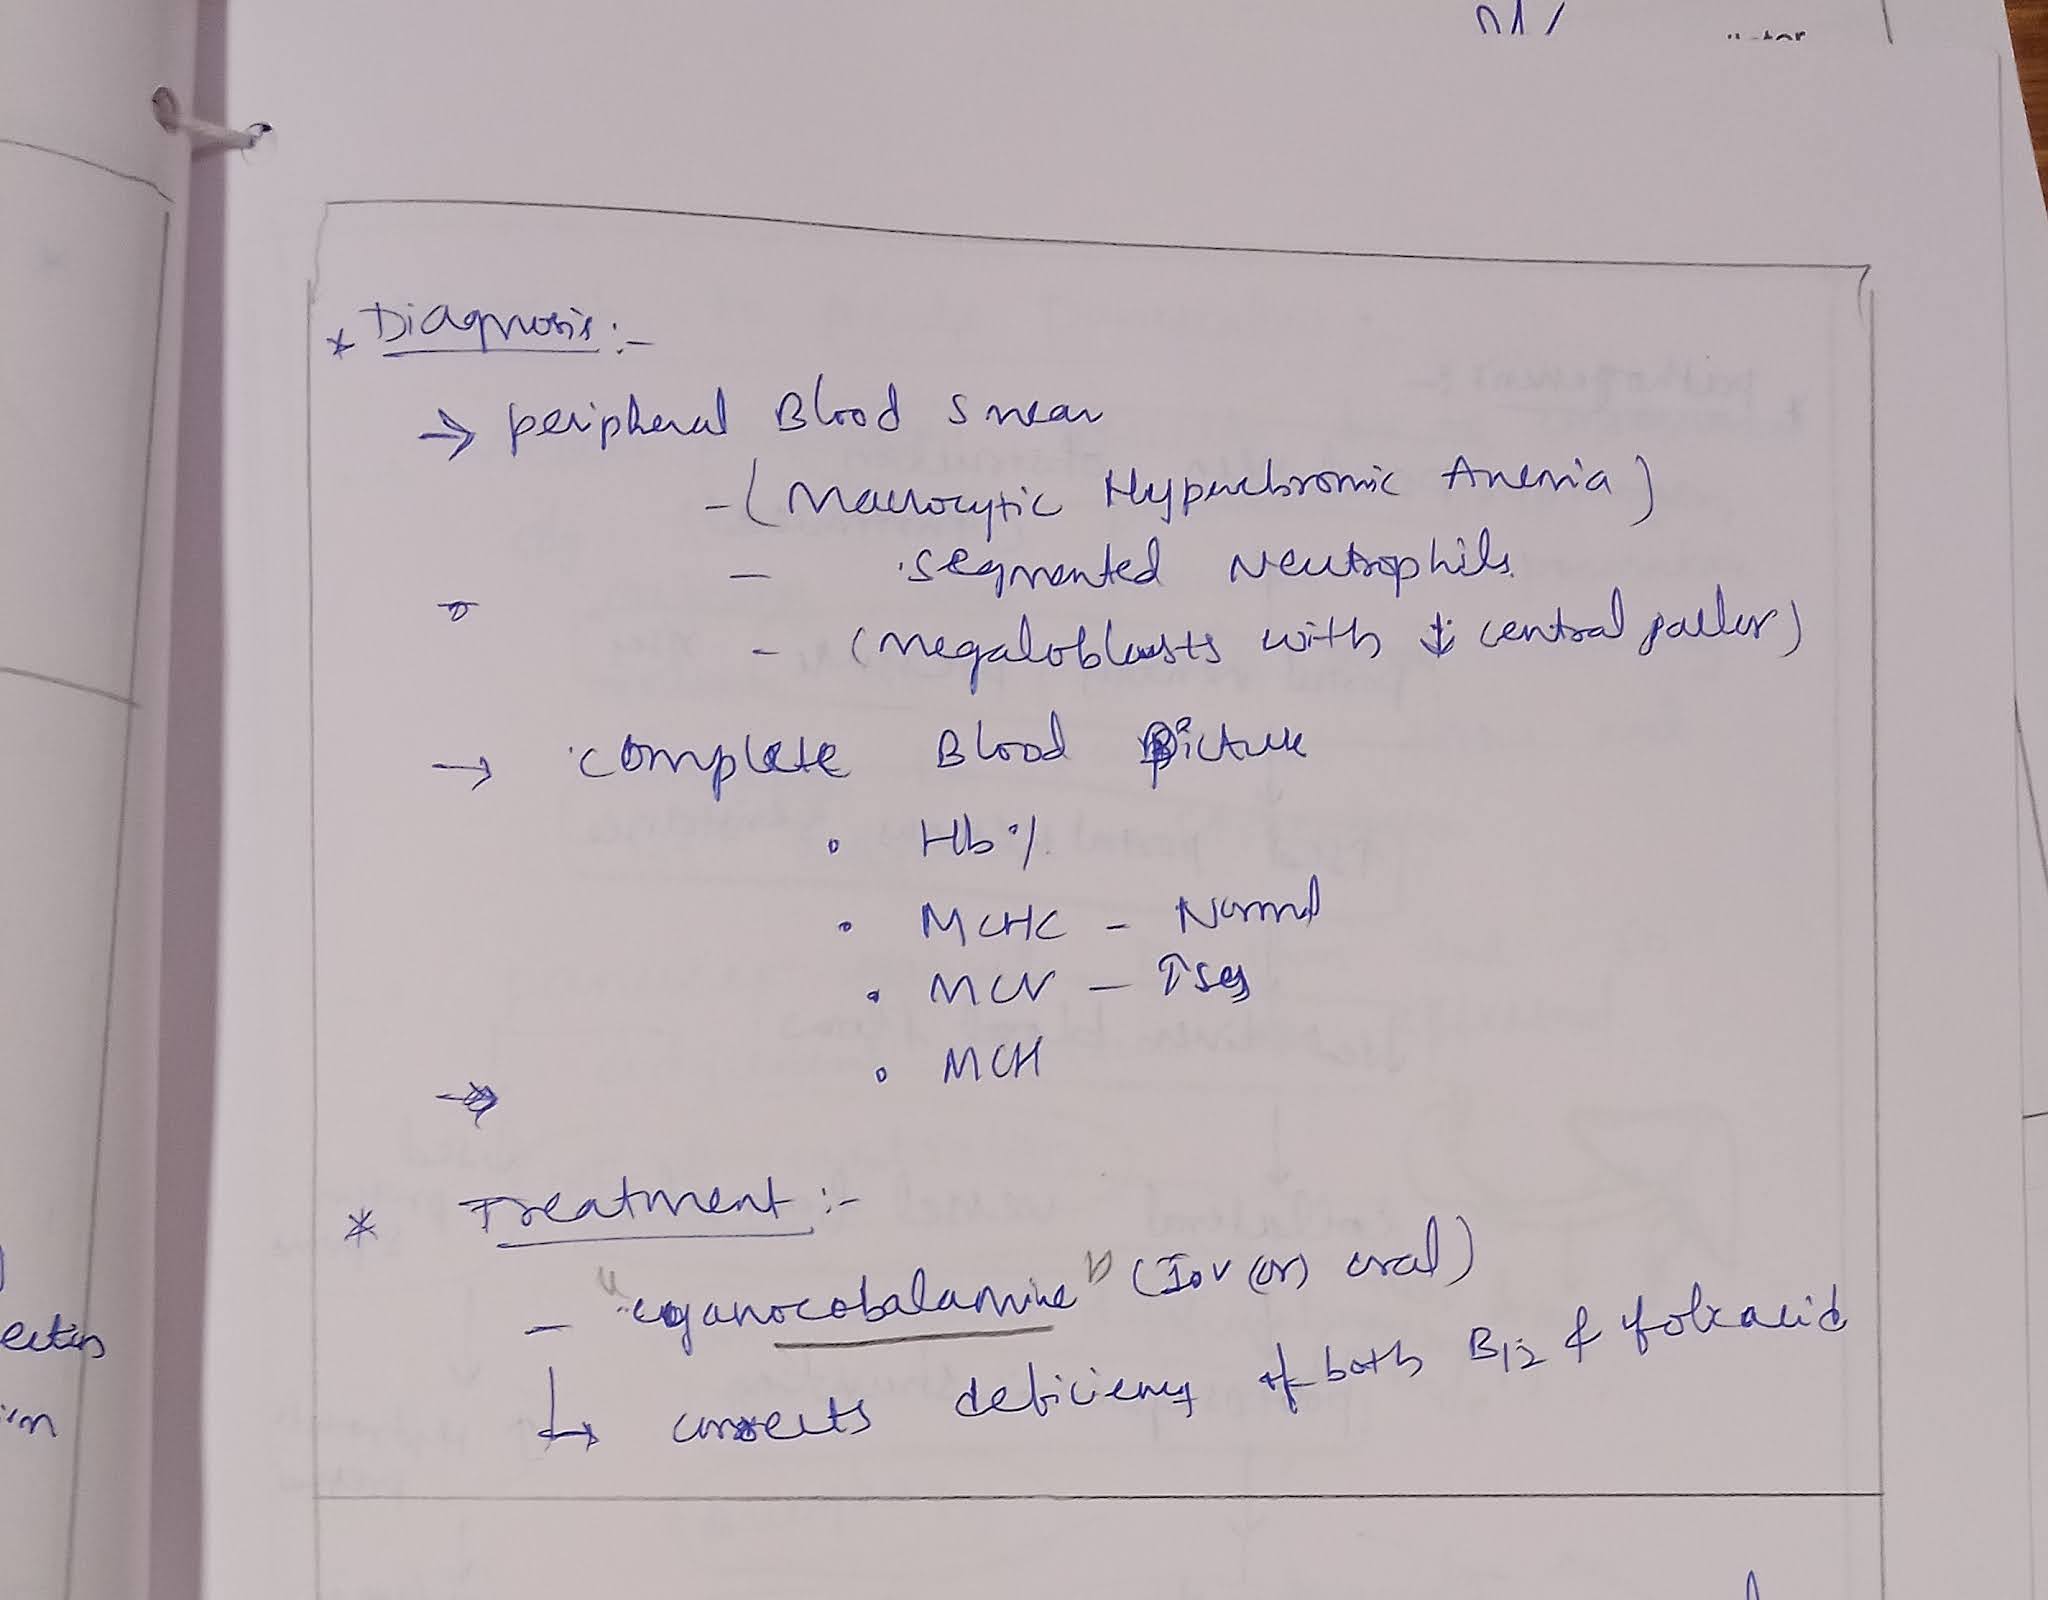 * Diagnosis :-
→ peripheral Blood smear
- (Macrocytic Hyperchromic Anemia)
- segmented Neutrophils
- (megaloblasts with ↓ central pallor)
→ complete Blood Picture
• Hb%
• MCHC - Normal
• MCV - ↑ses
• MCH
→
* Treatment :-
- "cyanocobalamine" (IOV (or) oral)
↳ corrects deficiency of both B12 & folic acid